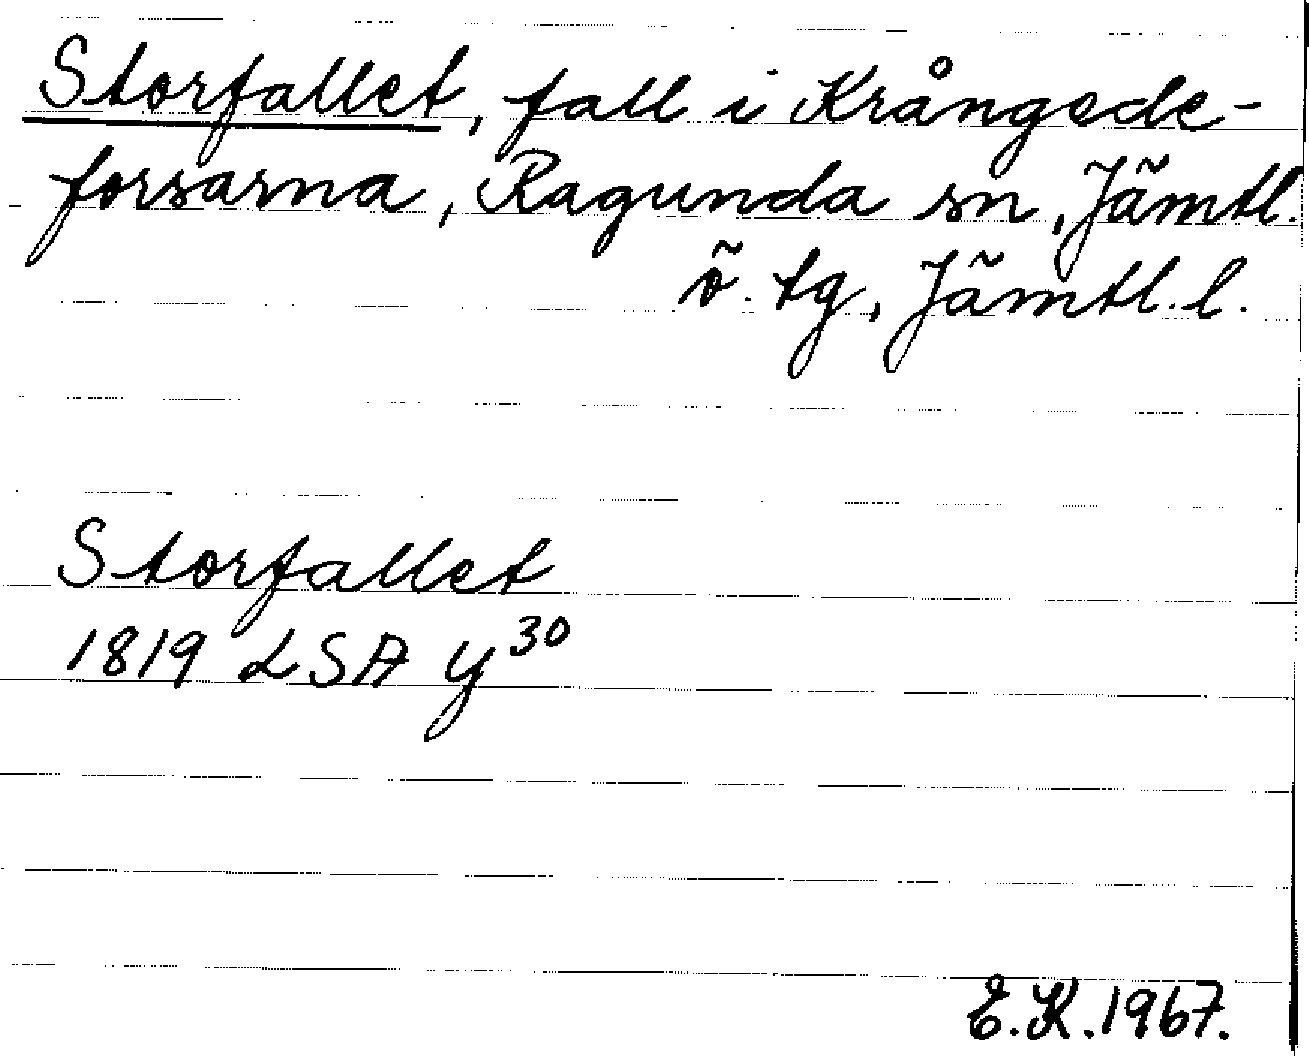 Storfallet, fall i Krångede-
forsarna, Ragunda sn, Jämtl.
ö. tg, Jämtl. l.
Storfallet
1819 LSA Y³⁰
E.K. 1967.